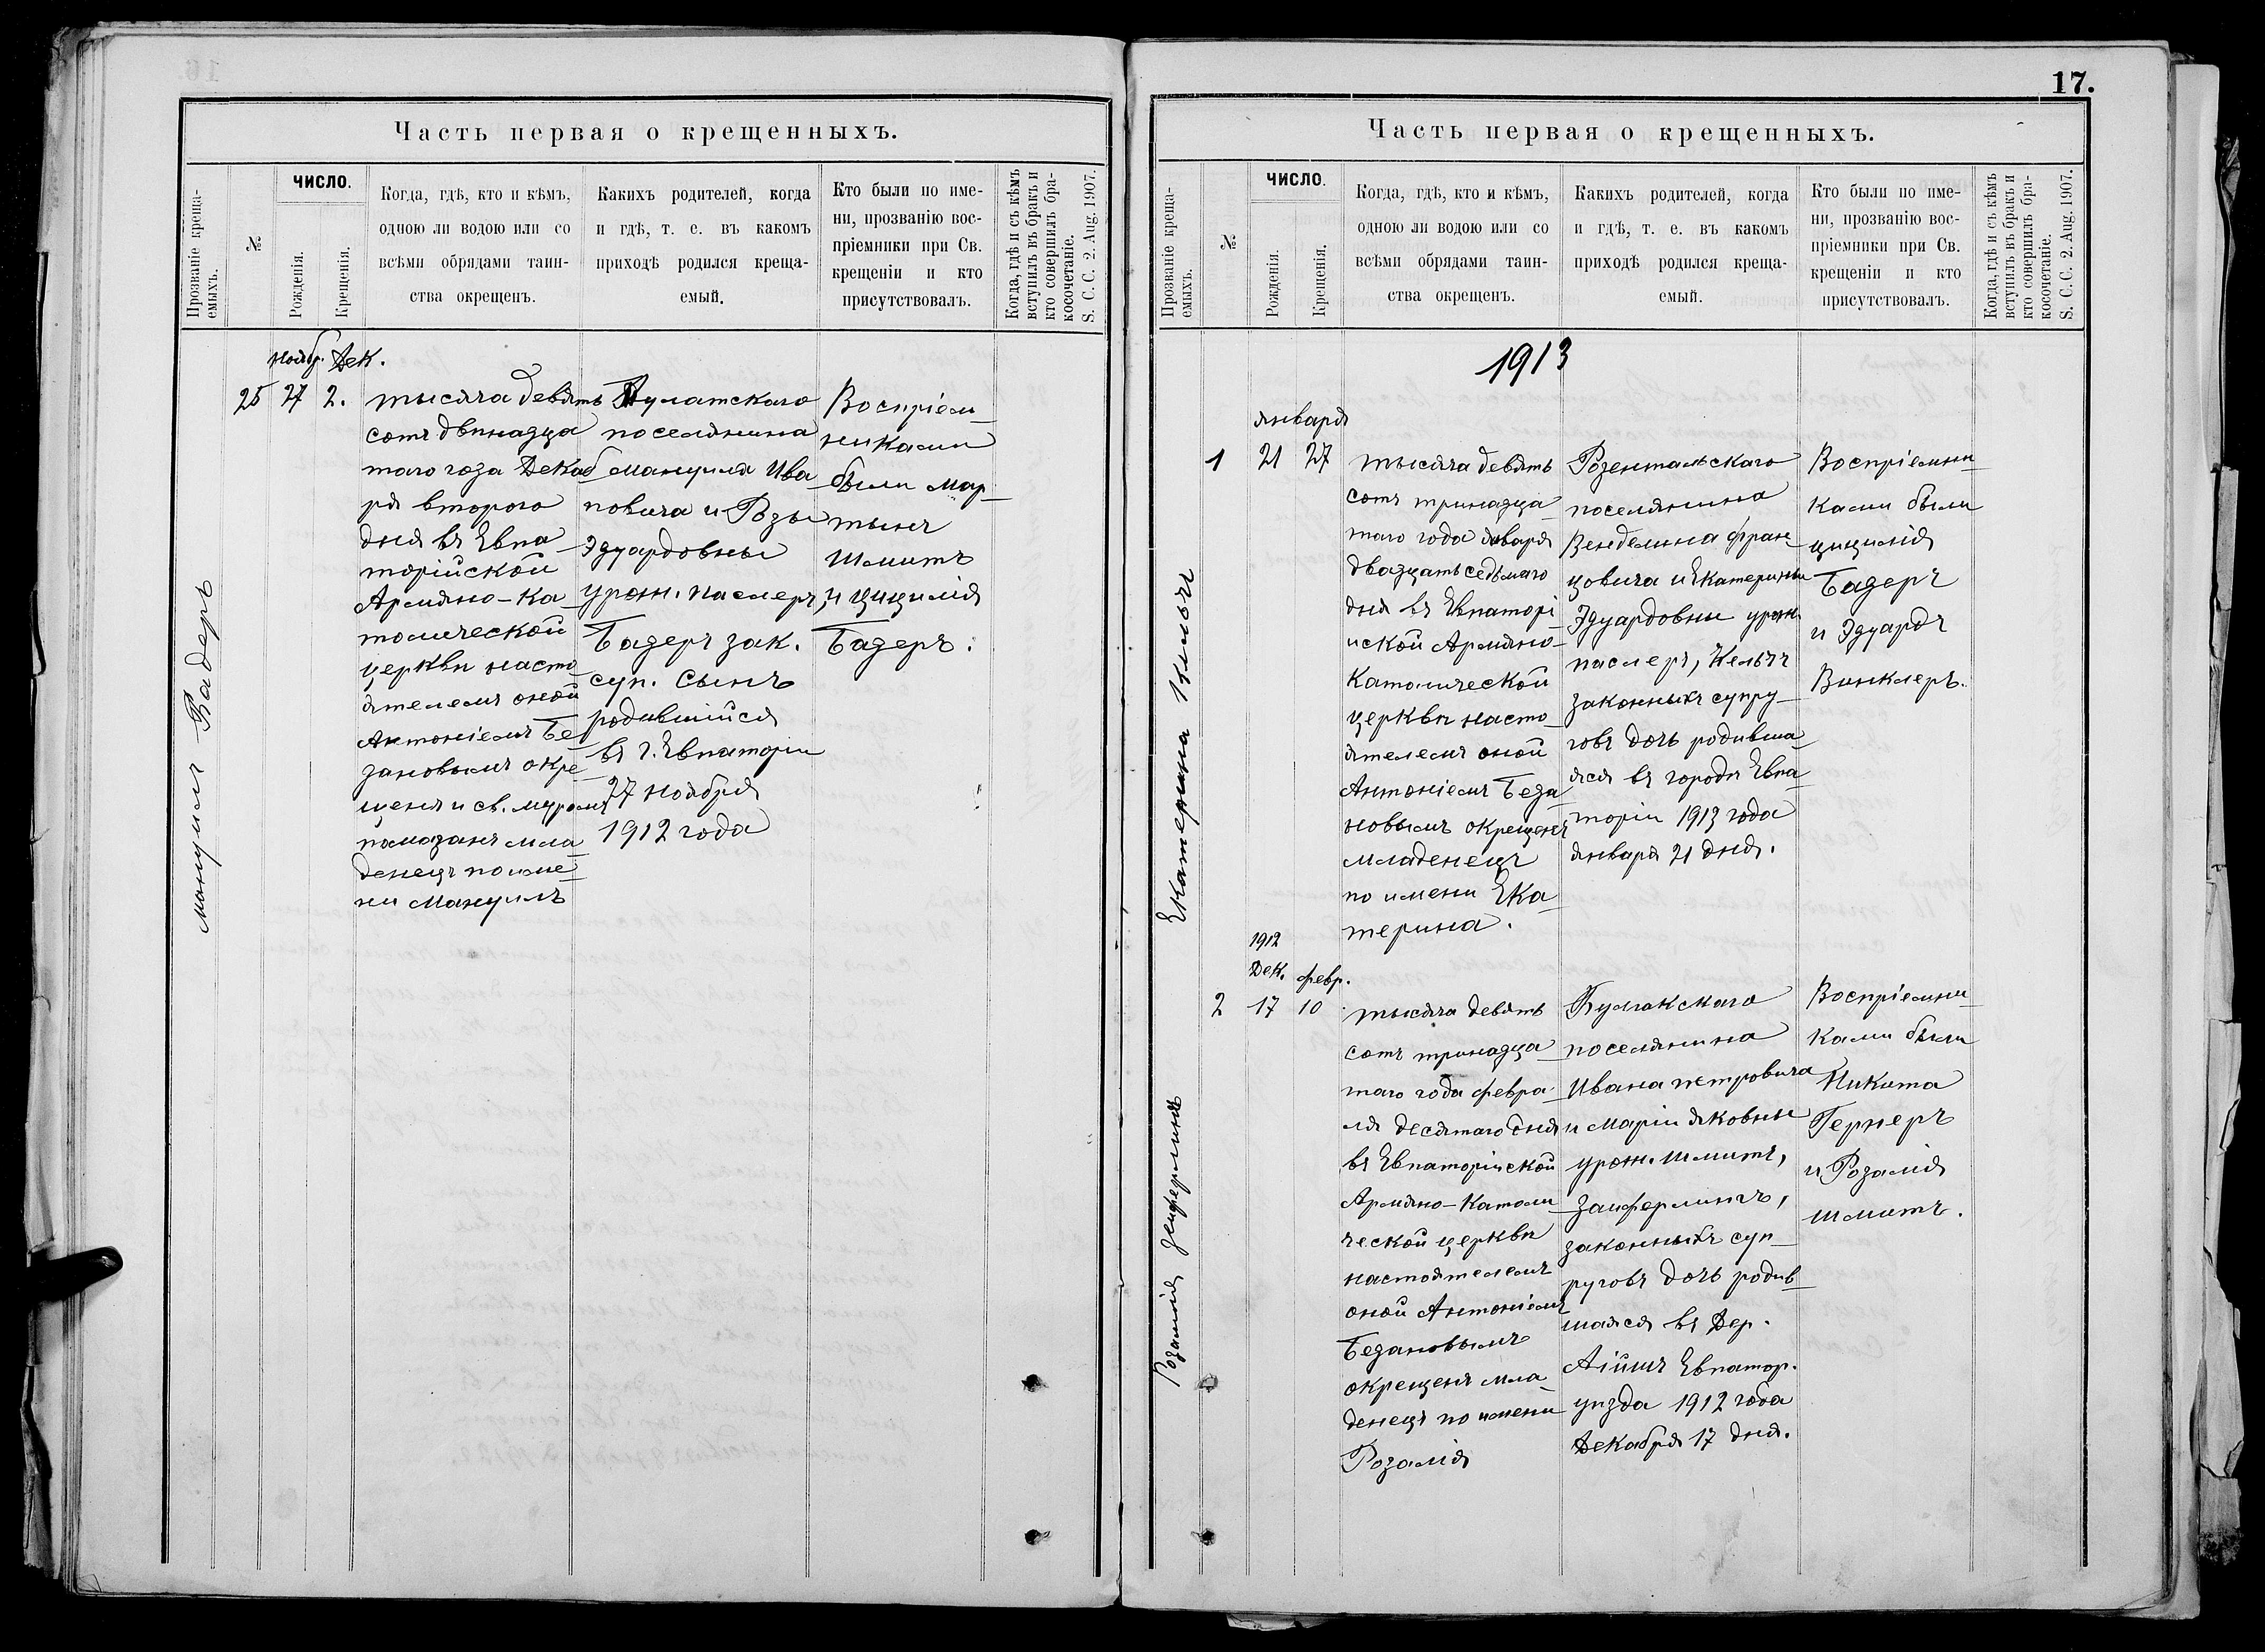 Часть первая о крещенныхъ.
Прозваніе креща-
емыхъ.
№
ЧИСЛО.
Рожденія.
Крещенія.
Когда, гдѣ, кто и кѣмъ,
одною ли водою или со
всѣми обрядами таин-
ства окрещенъ.
Какихъ родителей, когда
и гдѣ, т. е. въ какомъ
приходѣ родился креща-
емый.
Кто были по име-
ни, прозванію вос-
пріемники при Св.
крещеніи и кто
присутствовалъ.
Когда, гдѣ и съ кѣмъ
вступилъ въ бракъ и
кто совершилъ бра-
косочетаніе.
S. C. C. 2. Aug. 1907.
Мануилъ Бадеръ
Ноябр. Дек.
25 27 2.
тысяча девять
сотъ двѣнадца
таго года Декаб
ря второго
дня въ Евпа
торійской
Армяно-Ка
толической
церкви насто
ятелемъ оной
Антоніемъ Бе
зановымъ окре
щенъ и св. муромъ
помазанъ мла
денецъ по име
ни Мануилъ
поселянина
Мануила Ива
новича и Розы
Эдуардовны
урож. Паслеръ,
Бадеръ зак.
суп. Сынъ
родившійся
въ г. Евпаторіи
27 Ноября
1912 года
Воспріем
никами
были Мар
тынъ
Шмитъ
и Цицилія
Бадеръ.
17.
Часть первая о крещенныхъ.
Прозваніе креща-
емыхъ.
№
ЧИСЛО.
Рожденія.
Крещенія.
Когда, гдѣ, кто и кѣмъ,
одною ли водою или со
всѣми обрядами таин-
ства окрещенъ.
Какихъ родителей, когда
и гдѣ, т. е. въ какомъ
приходѣ родился креща-
емый.
Кто были по име-
ни, прозванію вос-
пріемники при Св.
крещеніи и кто
присутствовалъ.
Когда, гдѣ и съ кѣмъ
вступилъ въ бракъ и
кто совершилъ бра-
косочетаніе.
S. C. C. 2. Aug. 1907.
1913
Екатерина
Января
1 21 27
тысяча девять
сотъ тринадца
таго года января
двадцать седьмаго
дня въ Евпаторі
йской Армяно-
Католической
церкви насто
ятелемъ оной
Антоніемъ Беза
новымъ окрещенъ
младенецъ
по имени Ека
терина.
Розентальскаго
поселянина
Венделина Фран
цовича и Екатерины
Эдуардовны урож.
Паслеръ, Кельчъ
законныхъ супру
говъ дочь родивша
яся въ городѣ Евпа
торіи 1913 года
января 21 дня.
Воспріемни
ками были
Цицилія
Бадеръ
и Эдуардъ
Винклеръ.
Розалія Зейферлингъ
1912
Дек. Февр.
2 17 10
тысяча девять
сотъ тринадца
таго года февра
ля десятаго дня
въ Евпаторійской
Армяно-Катол
ческой церкви
настоятелемъ
оной Антоніемъ
Безановымъ
окрещенъ мла
денецъ по имени
Розалія
поселянина
Ивана Петровича
и Маріи Яковны
урож. Шмитъ,
Заиферлингъ,
законныхъ суп
руговъ дочь родив
шаяся въ Дер.
Евпатор.
уѣзда 1912 года
Декабря 17 дня.
Воспріемни
ками были
Никита
Гернеръ
и Розалія
Шмитъ.